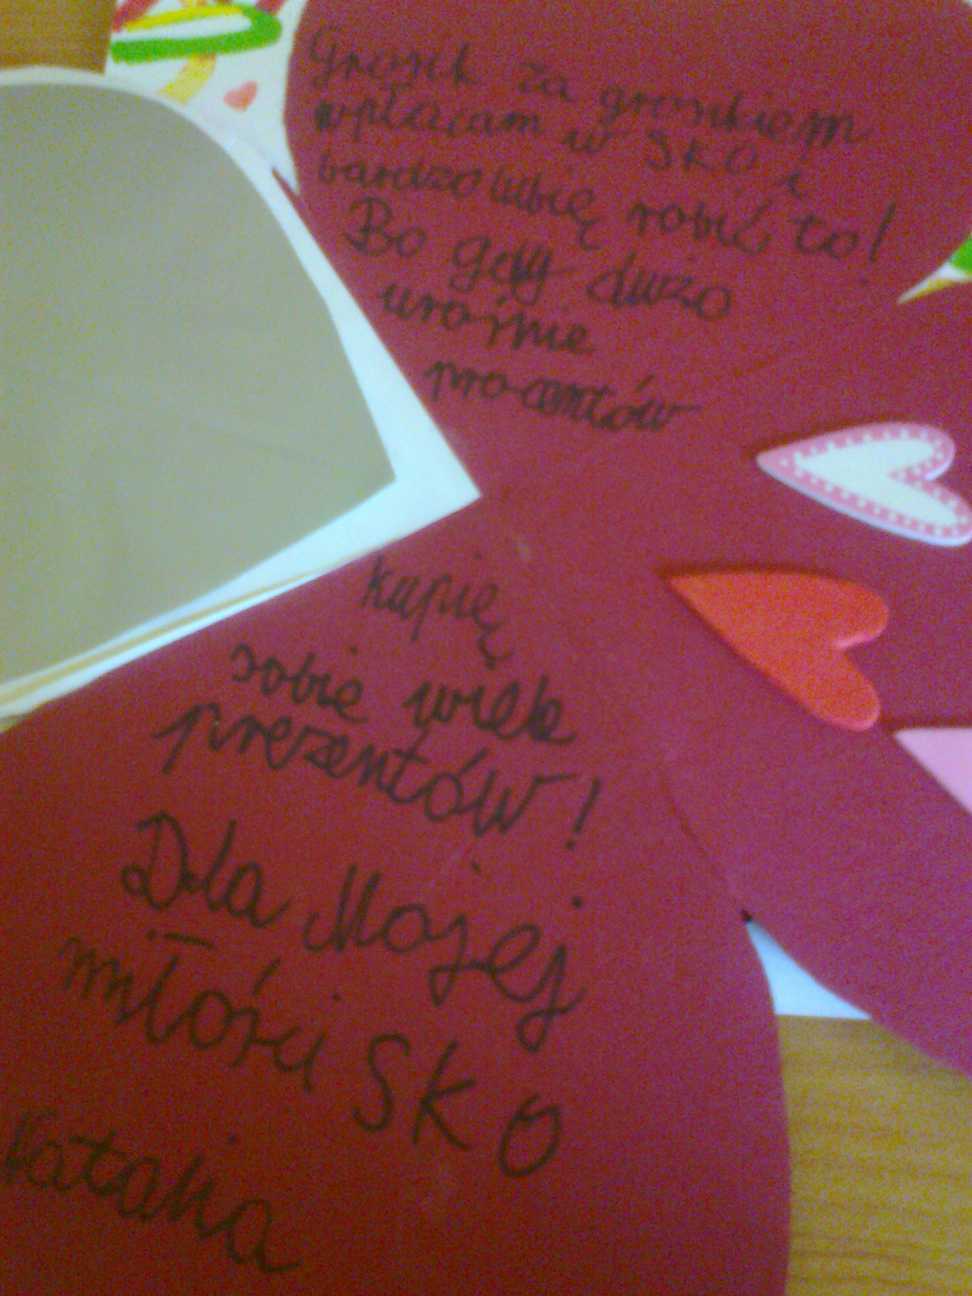 Grosik za grosikiem
wpłacam w SKO i
bardzo lubię robić to!
Bo gdy dużo
urośnie
procentów
kupię
sobie wiele
prezentów!
Dla Mojej
miłości SKO
Natalia